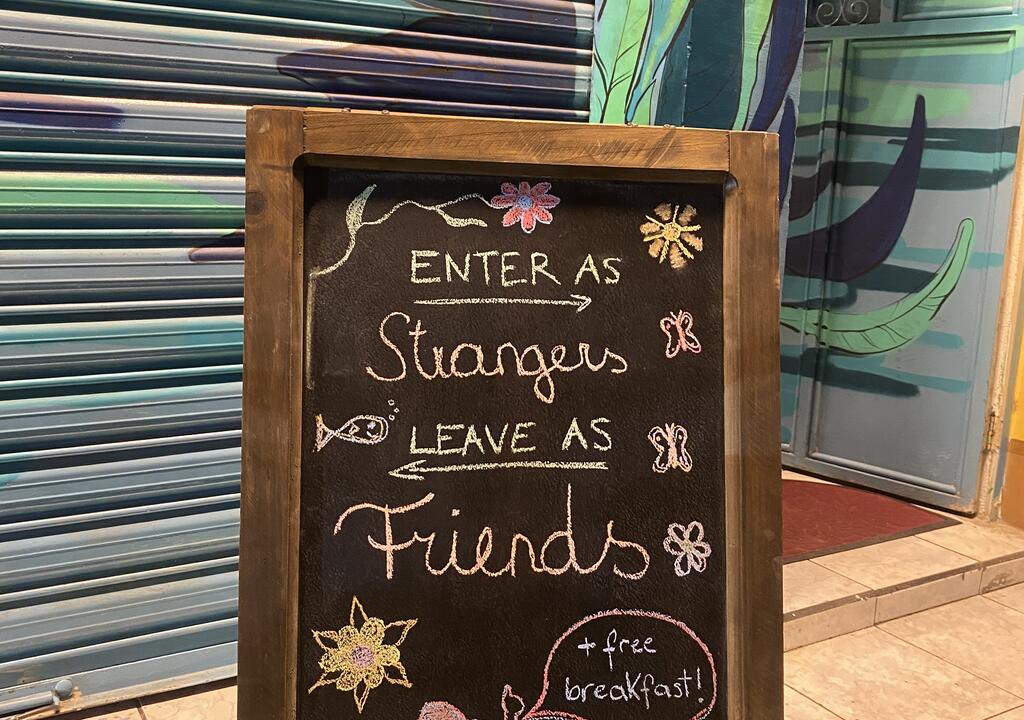 ENTER AS
Strangers
LEAVE AS
Friends
+ free
breakfast!